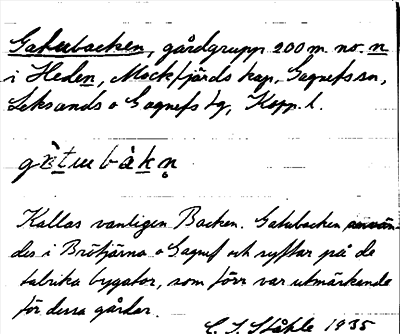 Gatubacken, gårdgrupp 200 m no. n
i Heden, Mockfjärds kap, Gagnefs sn,
Leksands o Gagnefs tg, Kopp. l.
gàtubàkn̥
Kallas vanligen Backen. Gatubacken använ-
des i Brötjärna o Gagnef och syftar på de
fabrika bygator, som förr var utmärkande
för dessa gårdar.
C. I. Ståhle 1935